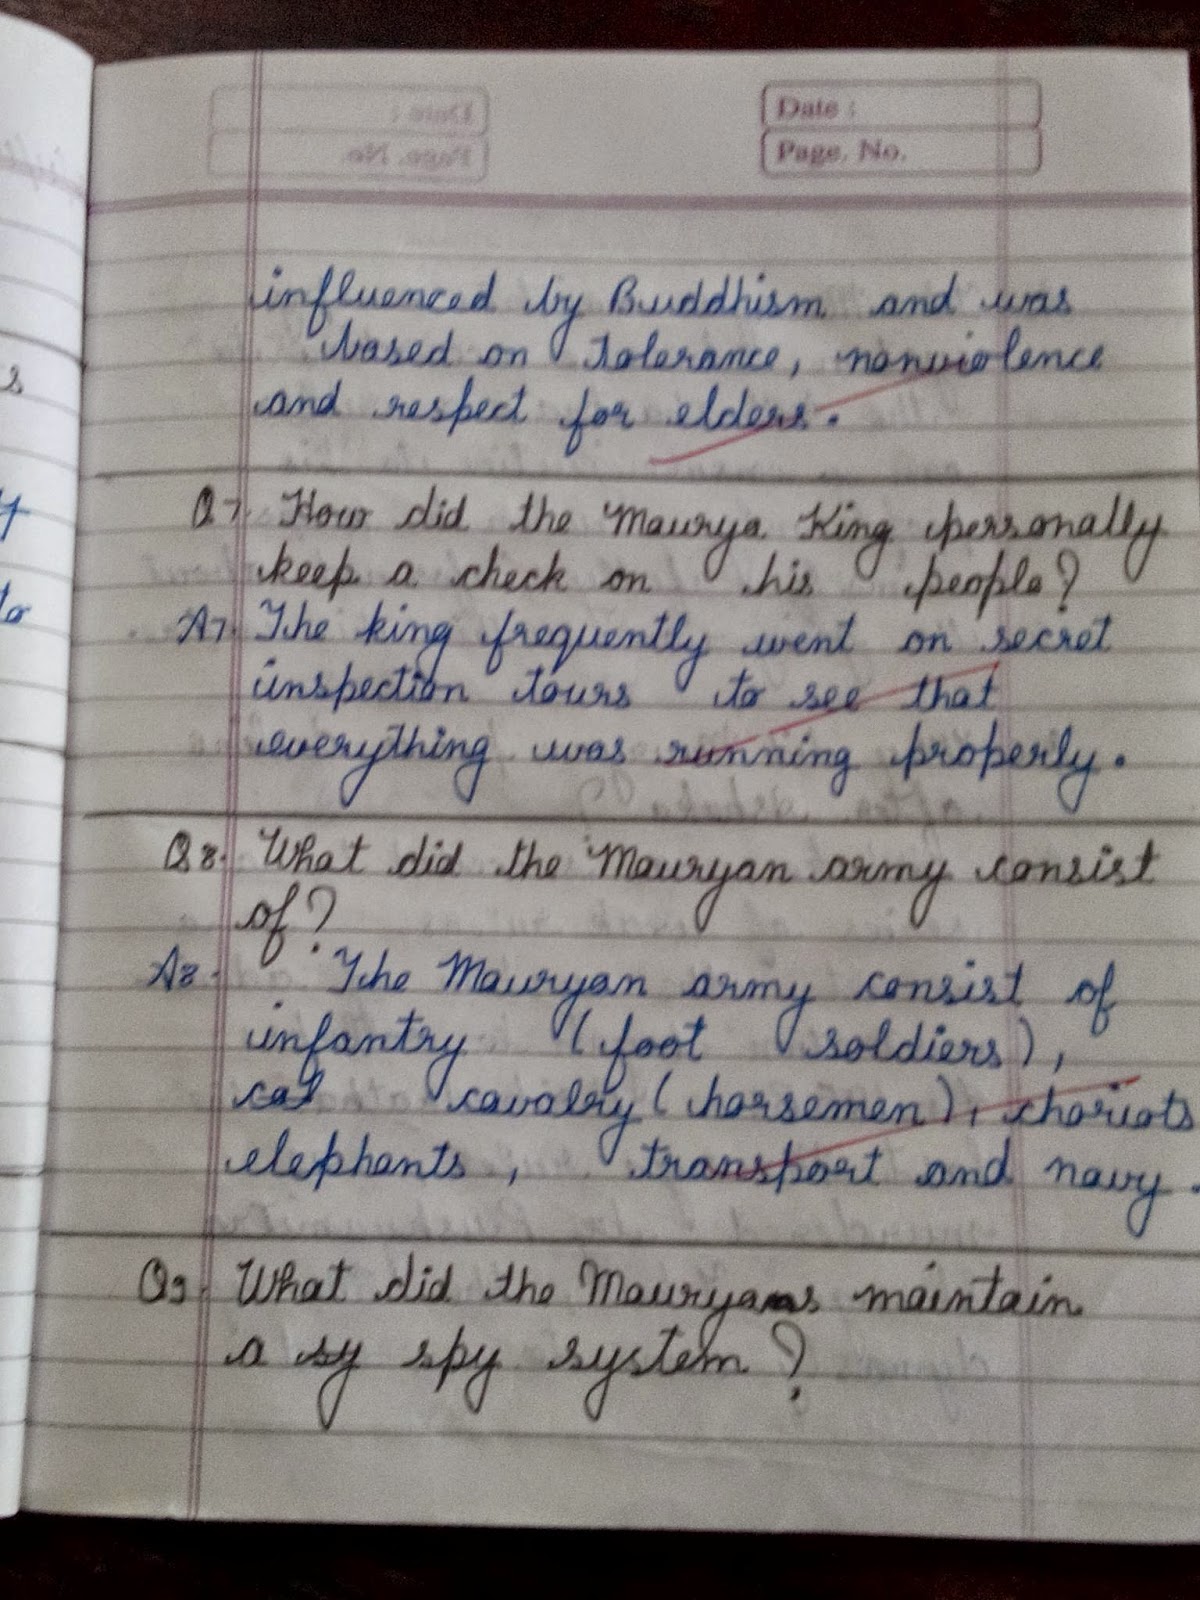 Date :
Page. No.
influenced by Buddhism and was
based on tolerance, nonviolence
and respect for elders.
Q7. How did the Maurya King personally
keep a check on his people?
A7. The king frequently went on secret
inspection tours to see that
everything was running properly.
Q8. What did the Mauryan army consist
of?
A8. The Mauryan army consist of
infantry (foot soldiers),
cal cavalry (horsemen), chariots
elephants, transport and navy.
Q9. What did the Mauryans maintain
a sy spy system?